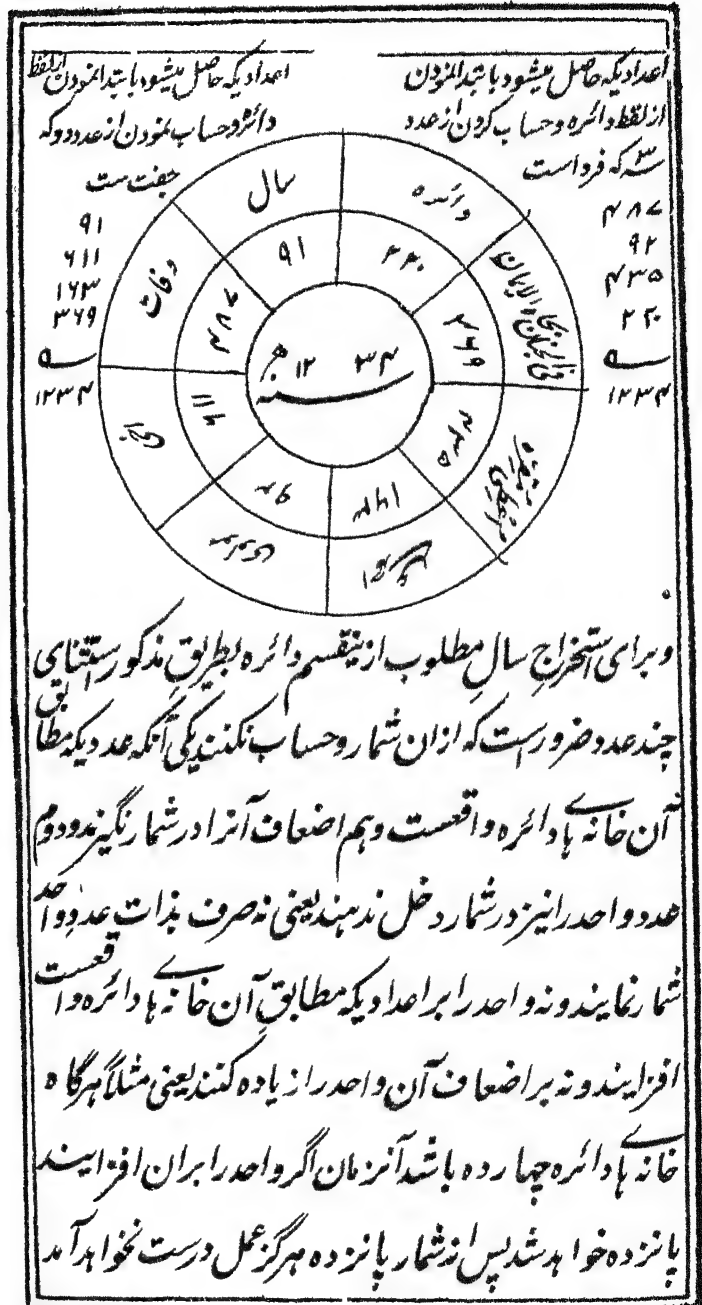 اعدادیکه حاصل میشود بابتدا نمودن
از لفظ دائره و حساب کردن از عدد
سه که فرد است
۴۸۷
۹۲
۴۳۵
۲۲۰
۱۲۳۴
اعدادیکه حاصل میشود بابتدا نمودن از لفظ
دائره و حساب نمودن از عدد دو که
جفت ست
۹۱
۶۱۱
۱۶۳
۳۶۹
۱۲۳۴
دائره
۲۲۰
۳۶۹
۴۳۵
۱۶۳
۹۲
۶۱۱
وفات
۴۸۷
سال
۹۱
سنه ۱۲۳۴ هـ
و برای استخراجِ سالِ مطلوب ازینقسم دائره بطریقِ مذکور استثنای
چند عدد ضرورست که ازان شمار و حساب نکنند یکی آنکه عددیکه مطابق
آن خانہاے دائره واقعست و هم اضعاف آنرا در شمار نگیرند و دوم
عدد واحد را نیز در شمار دخل ندهند یعنی نه صرف بذات عددِ واحد
شمار نمایند و نه واحد را بر اعدادیکه مطابقِ آن خانہاے دائره واقعست
افزایند و نه بر اضعاف آن واحد را زیاده کنند یعنی مثلاً هرگاه
خانہاے دائره چهارده باشد آنزمان اگر واحد را بران افزایند
پانزده خواهد شد پس از شمار پانزده هرگز عمل درست نخواهد آمد